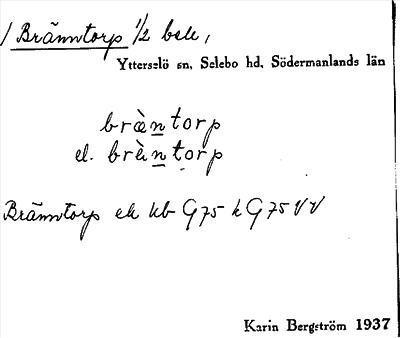 / Bränntorp 1/2 bele,
Ytterselö sn, Selebo hd, Södermanlands län
bràntorp
el. bràntorp
Bränntorp ek kb G75 k G75 VV
Karin Bergström 1937